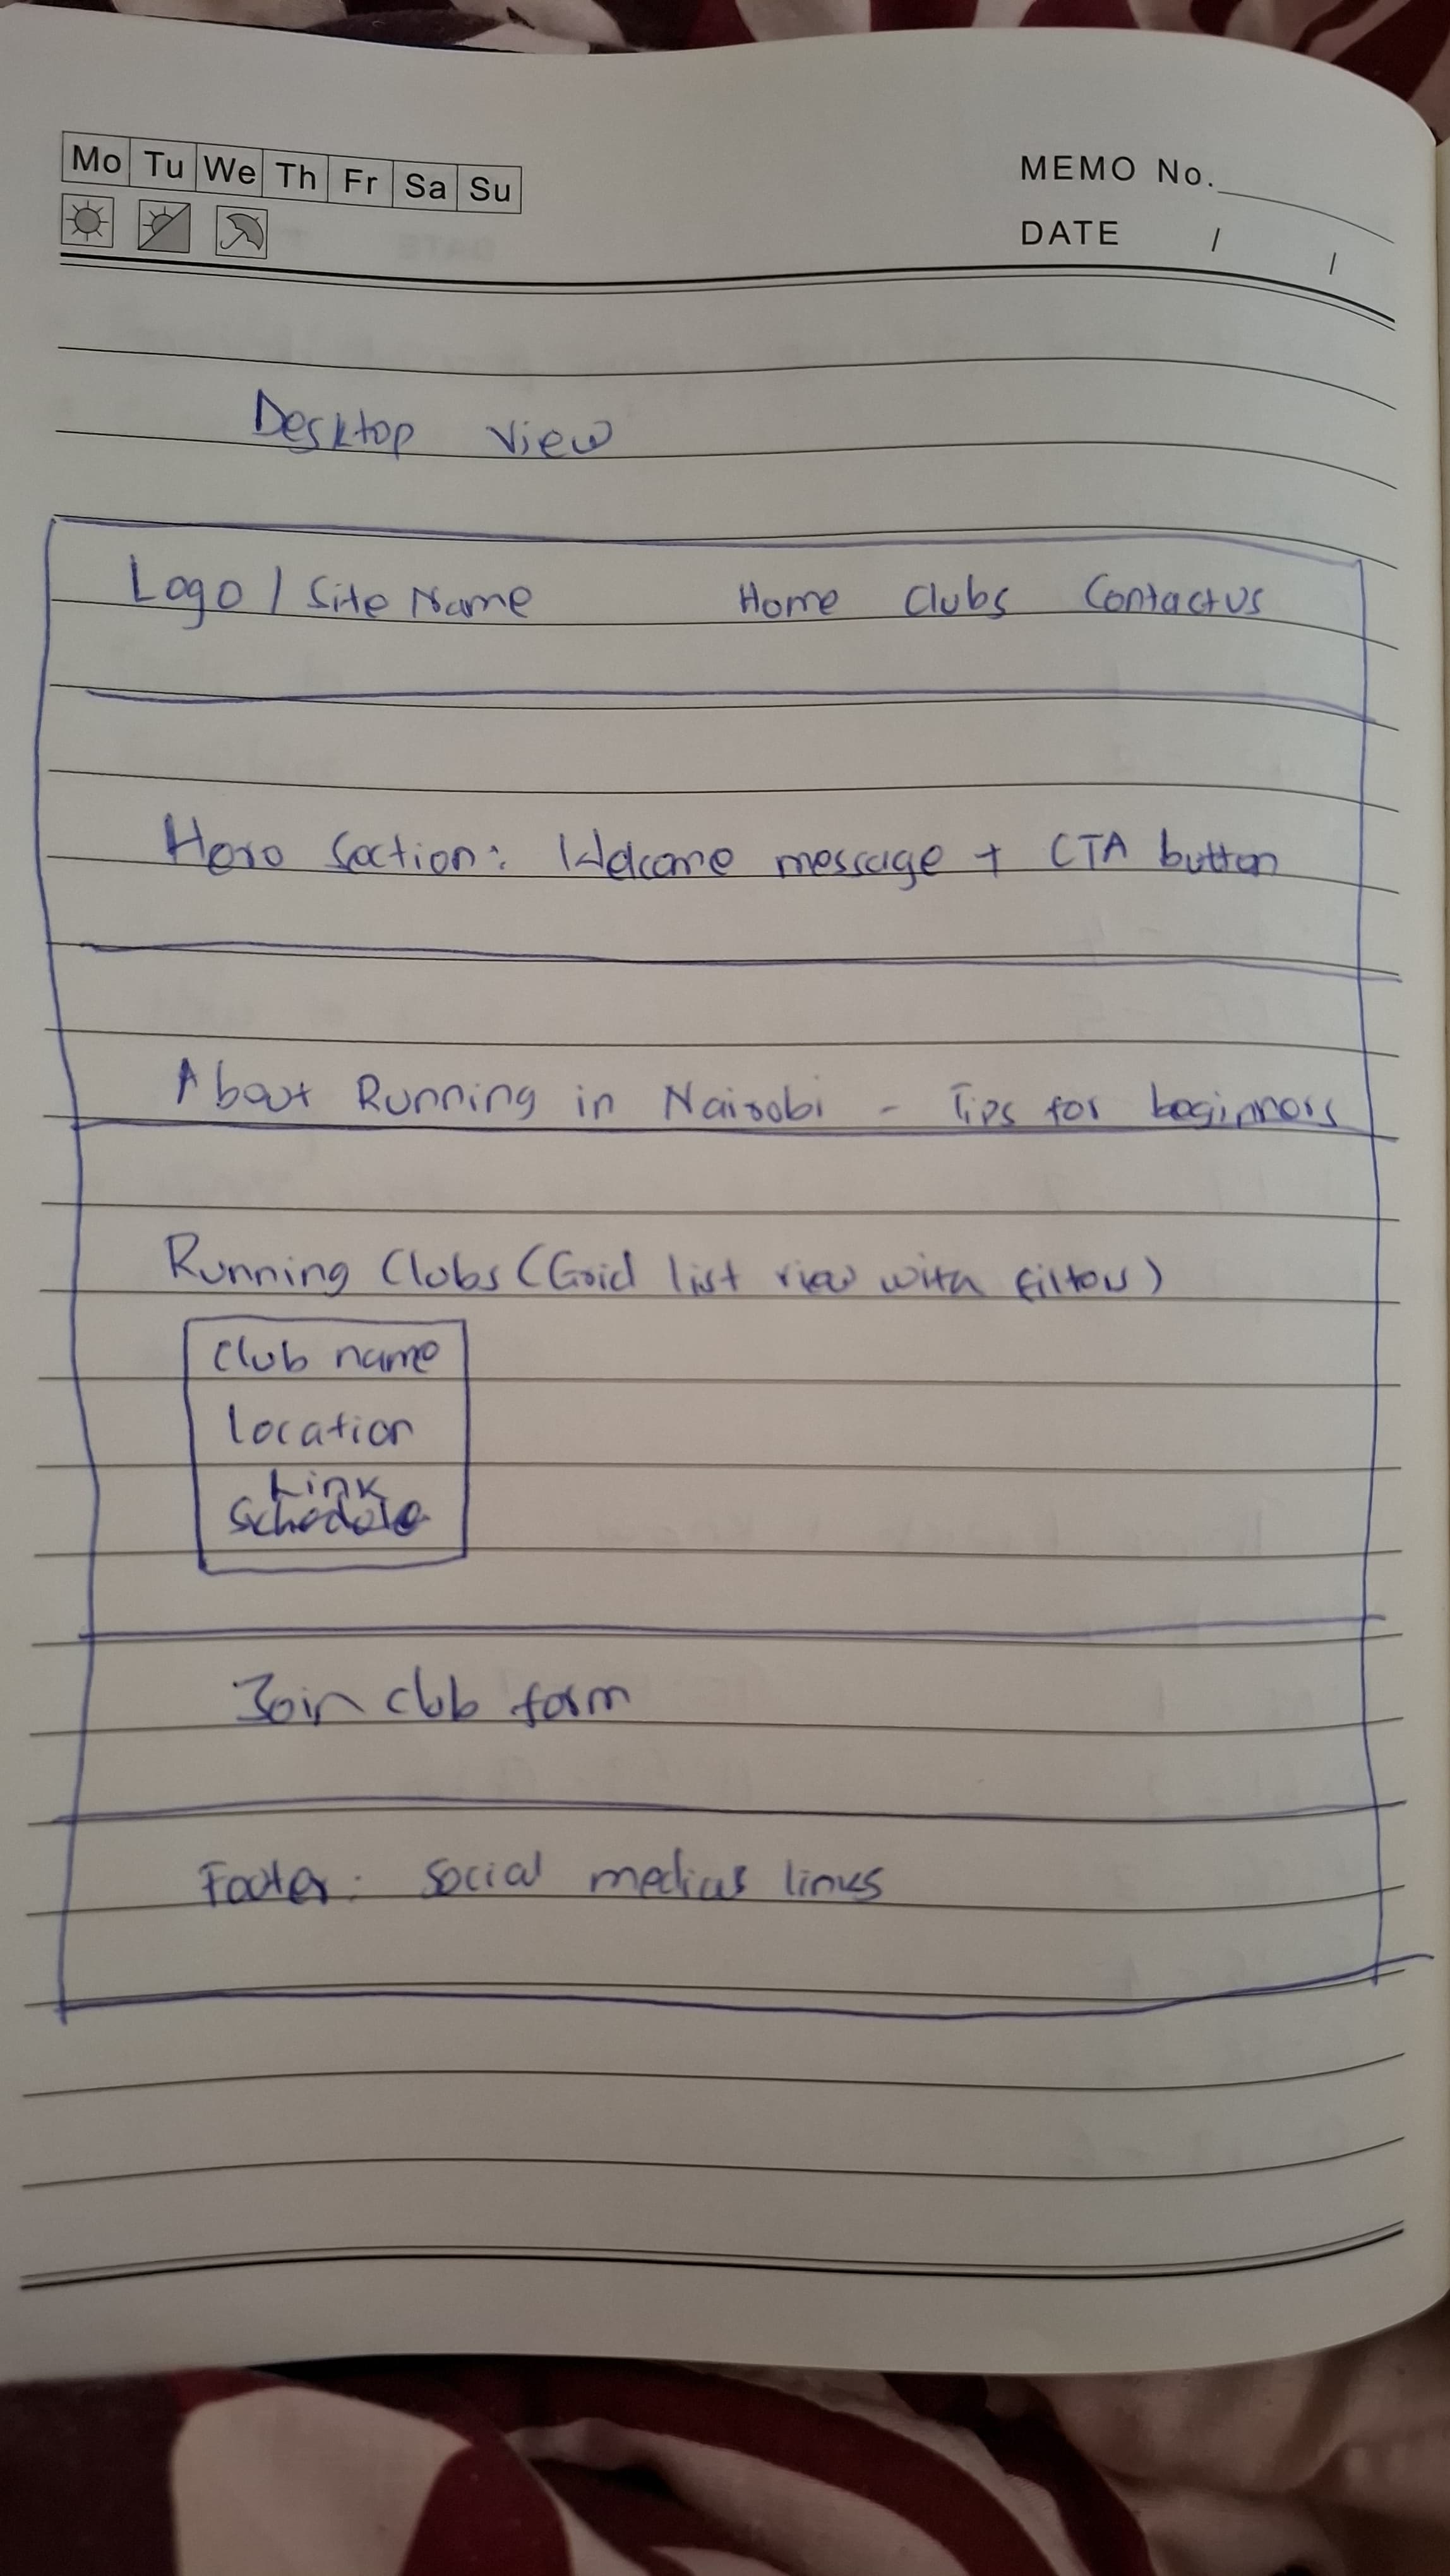 Mo Tu We Th Fr Sa Su
MEMO No.
DATE / /
Desktop view
Logo / Site Name Home Clubs Contact us
Hero Section: Welcome message + CTA button
About Running in Nairobi - Tips for beginners
Running Clubs (Grid list view with filters)
Club name
Location
Link
Schedule
Join club form
Footer: Social medias links